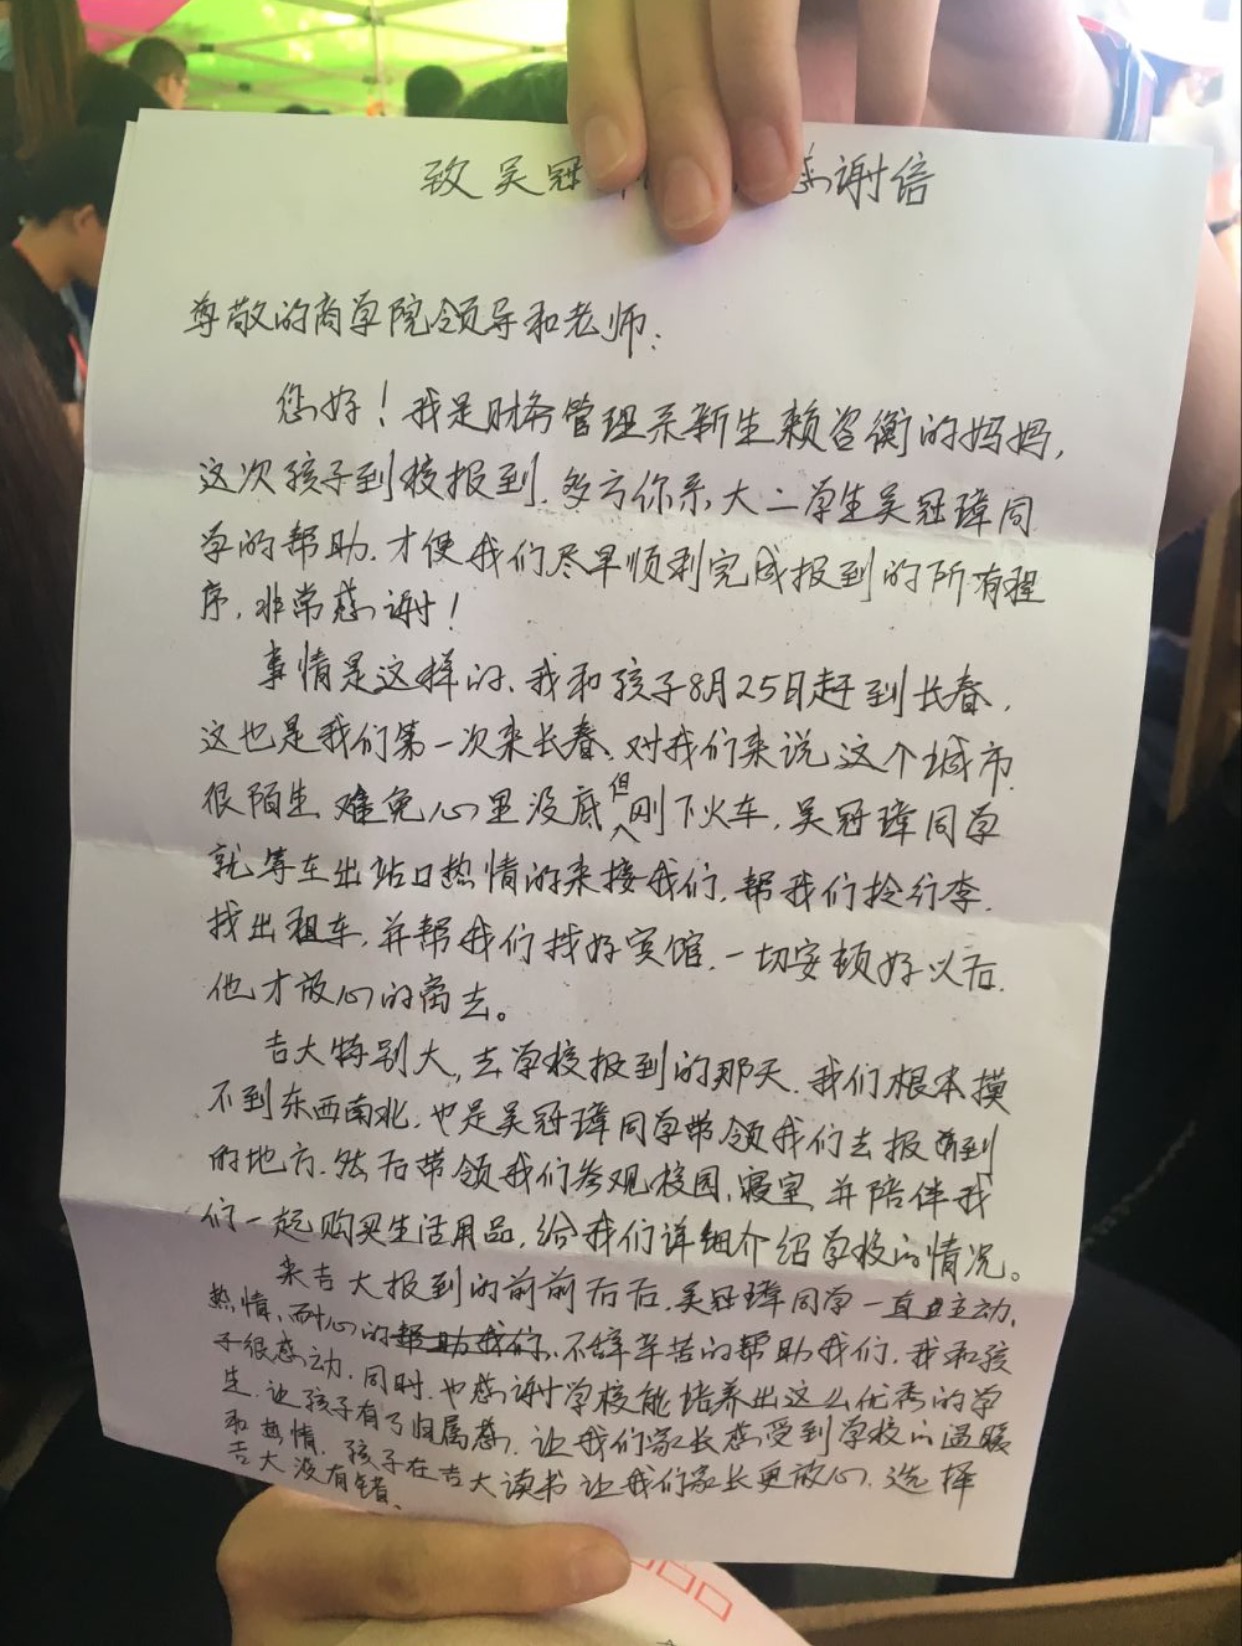 致吴冠 感谢信
尊敬的商学院领导和老师：
您好！我是财务管理系新生赖咨衡的妈妈，
这次孩子到校报到，多亏你系大二学生吴冠璋同
学的帮助，才使我们尽早顺利完成报到的所有程
序，非常感谢！
事情是这样的，我和孩子8月25日赶到长春，
这也是我们第一次来长春，对我们来说这个城市
很陌生，难免心里没底但刚下火车，吴冠璋同学
就等在出站口热情的来接我们，帮我们拎行李，
找出租车，并帮我们找好宾馆，一切安顿好以后，
他才放心的离去。
吉大特别大，去学校报到的那天，我们根本摸
不到东西南北，也是吴冠璋同学带领我们去报到
的地方，然后带领我们参观校园、寝室，并陪伴我
们一起购买生活用品，给我们详细介绍学校的情况。
来吉大报到的前前后后，吴冠璋同学一直主动、
热情、耐心的帮助我们、不辞辛苦的帮助我们，我和孩
子很感动，同时，也感谢学校能培养出这么优秀的学
生，让孩子有了归属感，让我们家长感受到学校的温暖
和热情，孩子在吉大读书让我们家长更放心，选择
吉大没有错。